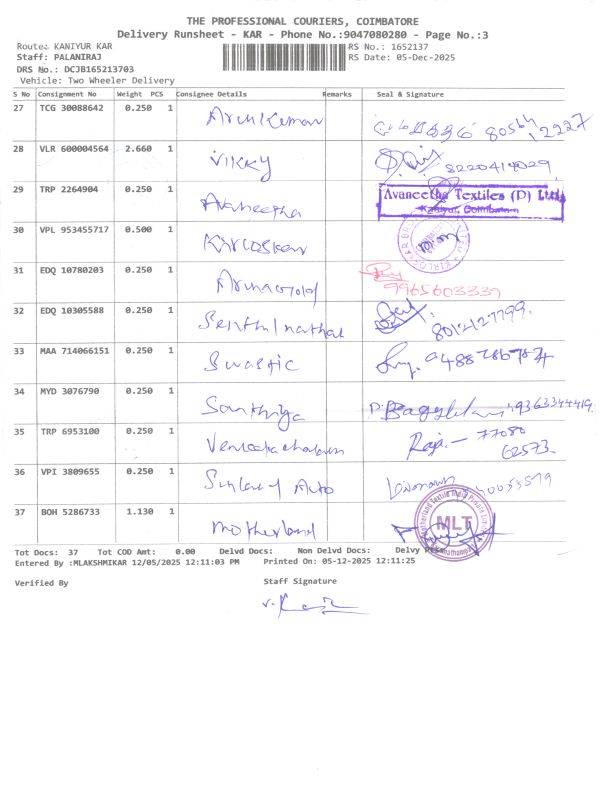 THE PROFESSIONAL COURIERS, COIMBATORE
Delivery Runsheet - KAR - Phone No.:9047080280 - Page No.:3
Route: KANIYUR KAR RS No.: 1652137
Staff: PALANIRAJ RS Date: 05-Dec-2025
DRS No.: DCJB165213703
Vehicle: Two Wheeler Delivery
S No Consignment No Weight PCS Consignee Details Remarks Seal & Signature
27 TCG 30088642 0.250 1 Arun Kumar
28 VLR 600004564 2.660 1 VIKKY 8220414029
29 TRP 2264904 0.250 1 Avaneetha Avaneetha Textiles (P) Ltd Kaniyur, Coimbatore
30 VPL 953455717 0.500 1 Kirloskar
31 EDQ 10780203 0.250 1 9965603339
32 EDQ 10305588 0.250 1 Senthilnathan 8012127799.
33 MAA 714066151 0.250 1 Swastic
34 MYD 3076790 0.250 1 Santhiya 9363344419.
35 TRP 6953100 0.250 1 Venkatachalam Raja - 77080
62573.
36 VPI 3809655 0.250 1 Auto
37 BOH 5286733 1.130 1 Motherland MLT
Tot Docs: 37 Tot COD Amt: 0.00 Delvd Docs: Non Delvd Docs: Delvy
Entered By :MLAKSHMIKAR 12/05/2025 12:11:03 PM Printed On: 05-12-2025 12:11:25
Verified By Staff Signature